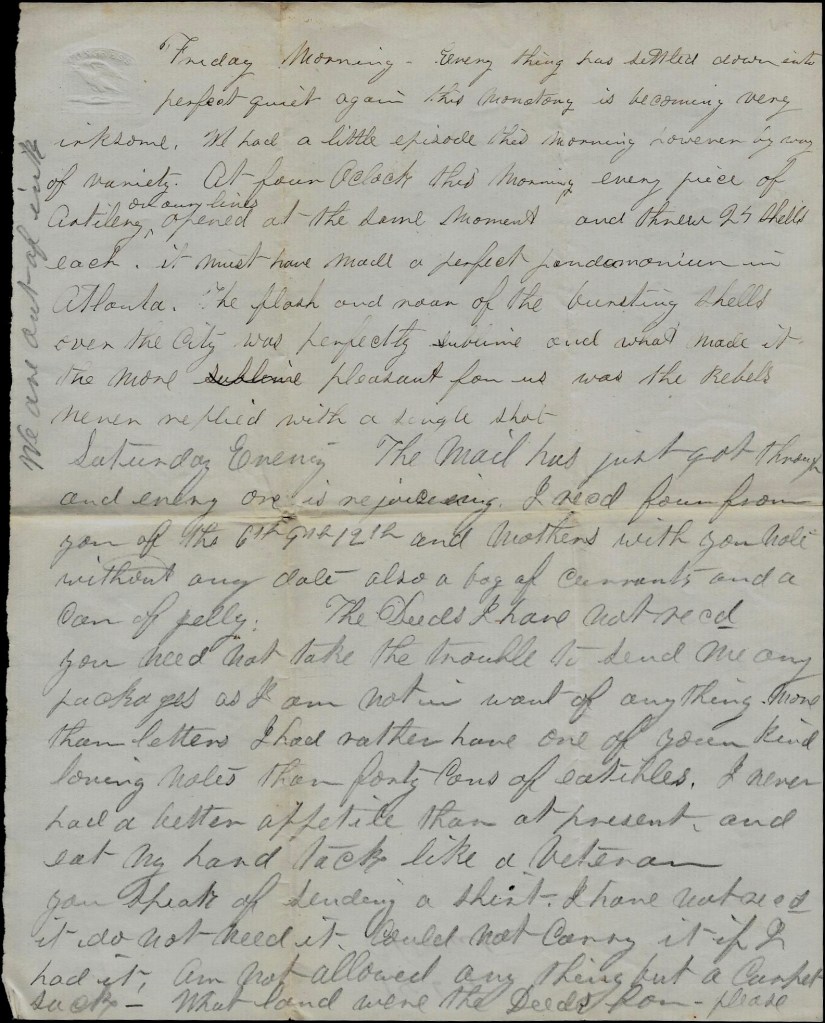 Friday Morning - Every thing has settled down into
perfect quiet again this monotony is becoming very
irksome. We had a little episode this morning however by way
of variety. At four Oclock this Morning every piece of
on our lines
Artilery, opened at the same moment and threw 25 shells
each. it must have made a perfect pandemonium in
Atlanta. The flash and roar of the bursting shells
over the City was perfectly sublime and what made it
the more sublime pleasant for us was the Rebels
never replied with a single shot
Saturday Evening The Mail has just got through
and every one is rejoiceing. I recd four from
you of the 6th 9th 12th and Mothers with you note
without any date also a bag of Currants and a
Can of jelly. The Deeds I have not recd
you need not take the trouble to send me any
packages as I am not in want of any thing more
than letters I had rather have one of your kind
loving notes than forty Cans of eatibles. I never
had a better appetite than at present, and
eat my hard tack like a Veteran
you speak of sending a shirt. I have not recd
it do not need it could not carry it if I
had it, am not allowed any thing but a Carpet
Sack - What land were the Deeds for - please
We are out of ink